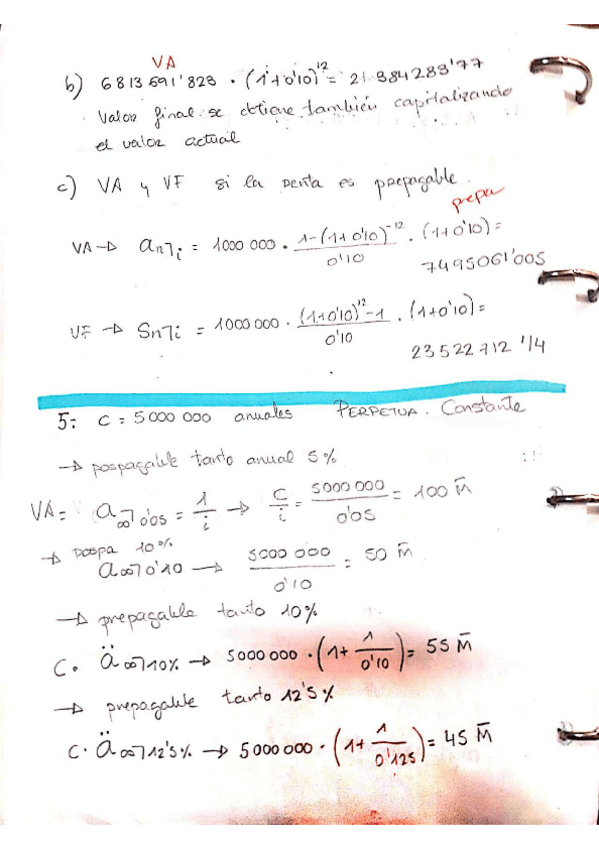 VA
b) 6813591'823 · (1+0'10)^12 = 21384283'77
· Valor final se obtiene también capitalizando
el valor actual
c) VA y VF si la renta es prepagable.
prepa
VA → an¬i = 1000 000 · 1-(1+0'10)^-12 / 0'10 · (1+0'10) =
7495061'005
VF → Sn¬i = 1000 000 · (1+0'10)^12-1 / 0'10 · (1+0'10) =
23522712'14
5: C = 5 000 000 anuales PERPETUA. Constante
→ pospagable tanto anual 5%
VA = a∞¬0'05 = 1/i → C/i = 5000 000 / 0'05 = 100 M̄
→ pospa 10%
a∞¬0'10 → 5000 000 / 0'10 = 50 M̄
→ prepagable tanto 10%
C. ä∞¬10% → 5000 000 · (1+ 1/0'10) = 55 M̄
→ prepagable tanto 12'5%
C. ä∞¬12'5% → 5000 000 · (1+ 1/0'125) = 45 M̄